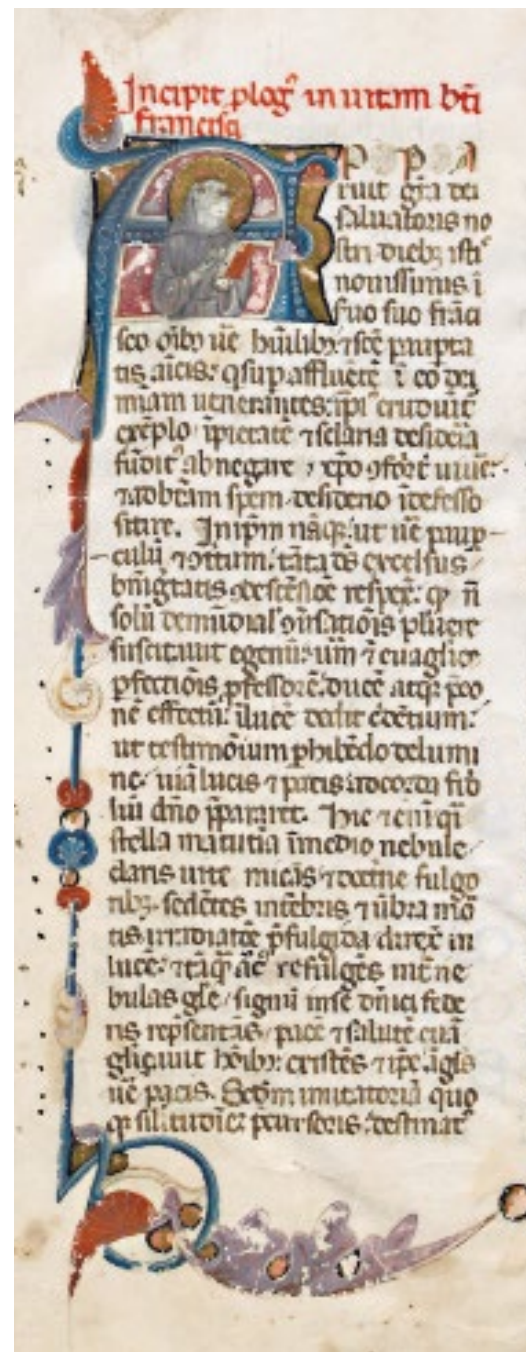 Incipit ꝓlogꝰ in uitam bt̄i
francisci
APPA
ruit gr̄a dei
saluatoris no
stri diebꝫ istꝭ
nouissimis ī
suo suo frāci
sco oībꝫ ūe hūilibꝫ ⁊ sc̄e paupta
tis aīcis: q̄ suꝑaffluētē ī eo dei
mīam uenerantes: ip̄iꝰ erudiūt̄
exēplo īpietatē ⁊ sclaria desidēia
fūditꝰ abnegare ⁊ xp̄o ꝯfort̄ uiuē:
⁊ ad bt̄am spem desiderio īdefesso
sitire. In ip̄m nāqꝫ ut ūe pauꝑ
culū ⁊ ꝯt̄tum: tāta dꝰ excelsus
bn̄ignitatis ꝯdescēsiōe respex̄: qꝫ n̄
solū de mūdialꝭ ꝯūsatiōis puluere
suscitauit egenū: um̄ ⁊ euāglice
ꝑfectiōis ꝓfessorē: ducē atqꝫ p̄co
nē effectū: ī lucē dedit c̄dētium:
ut testimōium ꝑhibēdo de lumi
ne: uiā lucis ⁊ pacis ad corda fid
liū dn̄o p̄pararet. Hic ⁊ enī q̄i
stella matutīa ī medio nebule
claris uite micās ⁊ doctn̄e fulgo
ribꝫ: sedētes in tēbris ⁊ ūbra mō
tis irradiatōe p̄fulgida direx̄ in
lucē: ⁊ tāq̄ arcꝰ refulgēs int̄ ne
bulas gl̄e: signū ī se dn̄ici fede
ris rep̄sentās: pacē ⁊ salutē euā
gliçauit hōībꝫ: existēs ⁊ ip̄e āgl̄s
ūe pacis. Scd̄m imitatoriā quoqꝫ
silitudinē p̄cursoris: destinatꝰ